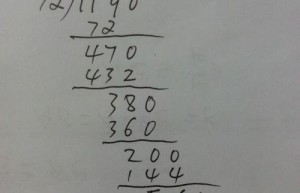 72)1190
72
470
432
380
360
200
144